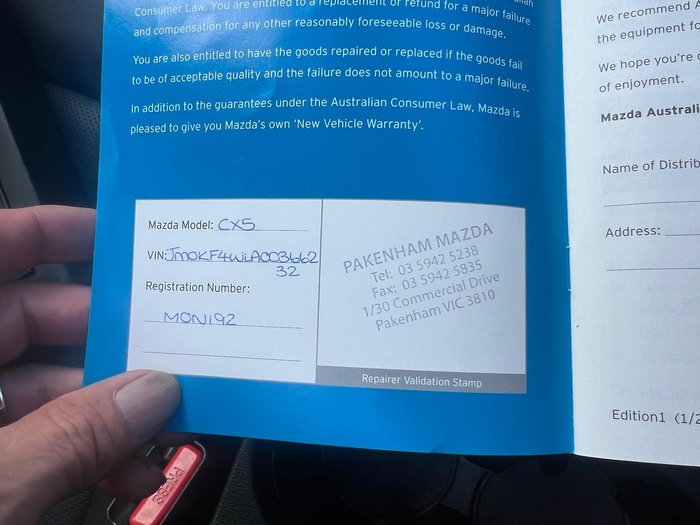 Consumer Law. You are entitled to a replacement or refund for a major failure
and compensation for any other reasonably foreseeable loss or damage.
You are also entitled to have the goods repaired or replaced if the goods fail
to be of acceptable quality and the failure does not amount to a major failure.
In addition to the guarantees under the Australian Consumer Law, Mazda is
pleased to give you Mazda's own 'New Vehicle Warranty'.
Mazda Model: CX5
VIN: JM0KF4WLAC03662
32
Registration Number:
MON192
PAKENHAM MAZDA
Tel: 03 5942 5238
Fax: 03 5942 5835
1/30 Commercial Drive
Pakenham VIC 3810
Repairer Validation Stamp
We recommend
the equipment fo
We hope you're
of enjoyment.
Mazda Australi
Name of Distrib
Address:
Edition1 (1/2
PRESS